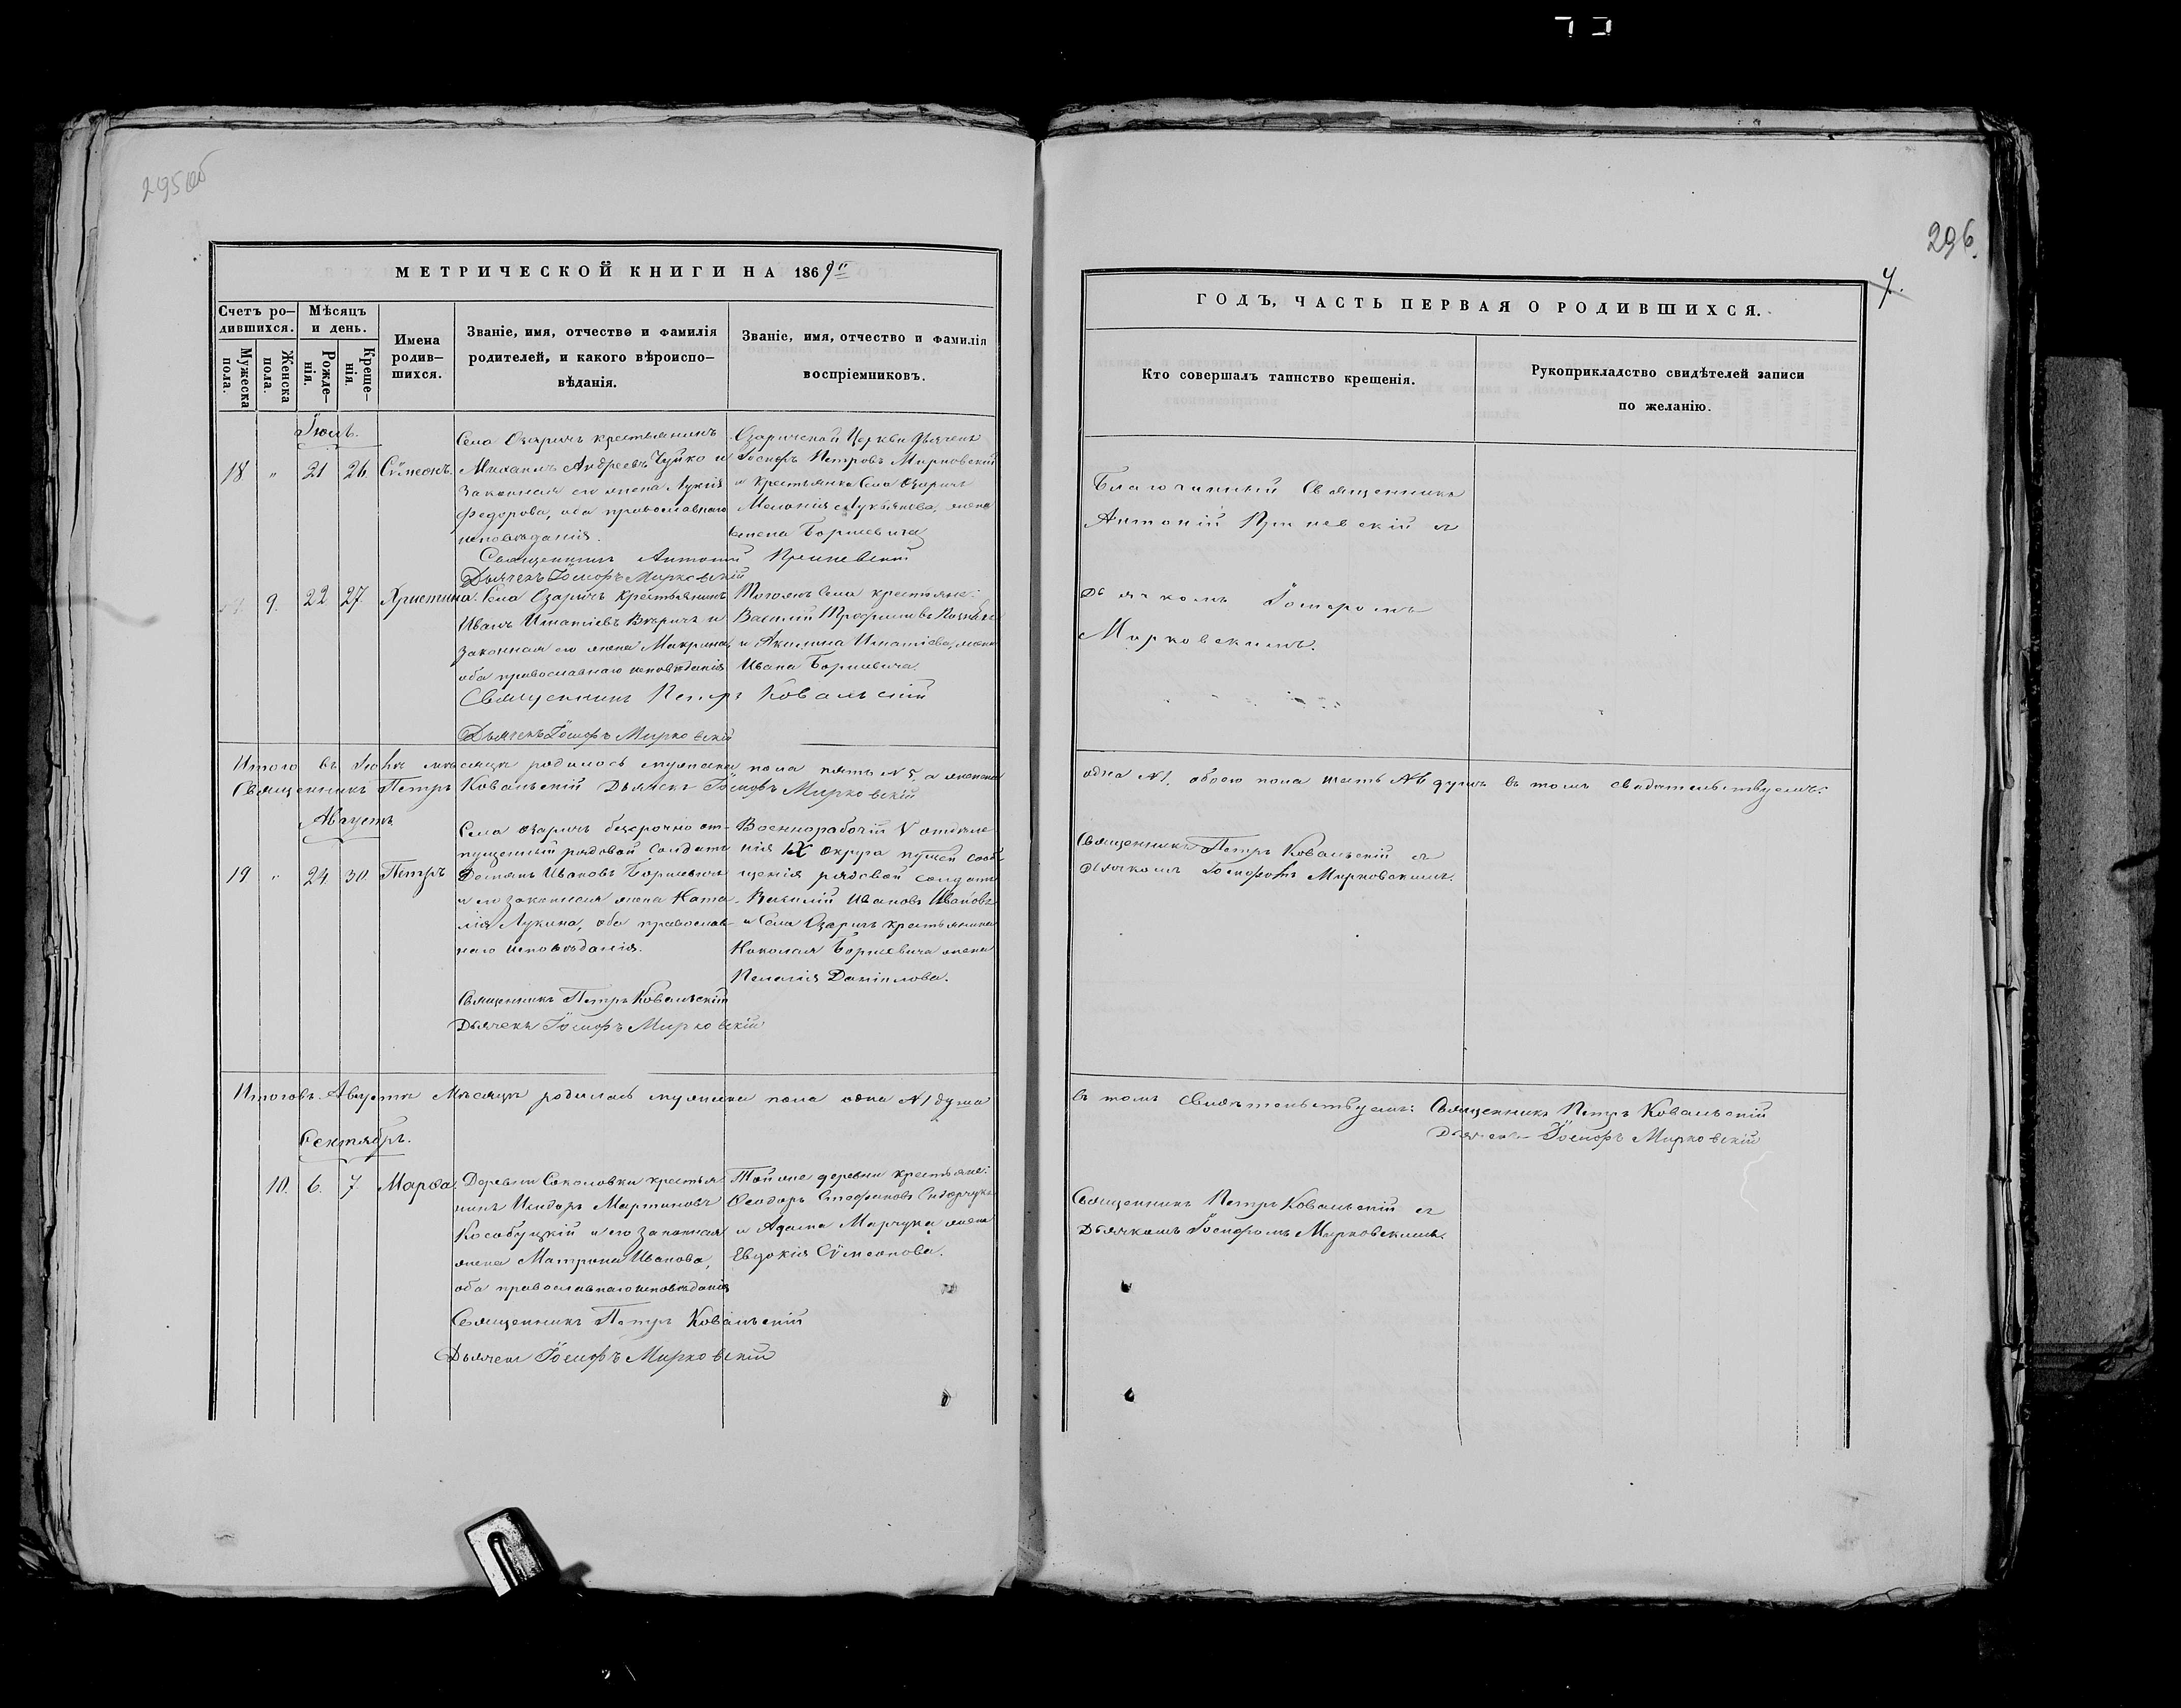 295об
МЕТРИЧЕСКОЙ КНИГИ НА 1869й
Счетъ ро-
дившихся.
Мужеска
пола.
Женска
пола.
Мѣсяцъ
и день.
Рожде-
нія.
Креще-
нія.
Имена
родив-
шихся.
Званіе, имя, отчество и фамилія
родителей, и какого вѣроиспо-
вѣданія.
Званіе, имя, отчество и фамилія
воспріемниковъ.
Іюль.
18 " 21 26. Сѵмеонъ.
Села Озаричъ крестьянинъ
Михаилъ Андреевъ Чуйко и
законная его жена Лукія
Федорова, оба православнаго
исповѣданія.
Озаричской Церкви Дьячекъ
Іосифъ Петровъ Мирковскій
и крестьянка Села Озаричъ
Меланія Лукьянова, жена
Борисевича
Священникъ Антоній
Дьячекъ Іосифъ Мирковскій
9. 22 27. Христина.
Села Озаричъ Крестьянинъ
Иванъ Игнатіевъ и
законная его жена Макрина,
оба православнаго исповѣданія
Того жъ Села крестьяне:
Василій Трофимовъ
и Акилина Игнатіева, жена
Ивана Борисевича.
Священникъ Петръ Ковальскій
Дьячекъ Іосифъ Мирковскій
Итого въ Іюлѣ мѣсяцѣ родилось мужеска пола пять №5, а женска
Священникъ Петръ Ковальскій Дьячекъ Іосифъ Мирковскій
Августъ
19 " 24. 30. Петръ
Села Озаричъ безсрочно от-
пущенный рядовой Солдатъ
Демьянъ Ивановъ Борисевичъ
и его законная жена Ната-
лія Лукина, оба православ-
наго исповѣданія.
Военнорабочій V отдѣле
нія IX Округа путей сооб-
щенія рядовой солдатъ
Василій Ивановъ Ивановъ
и Села Озаричъ крестьянина
Николая Борисевича жена
Пелагія Даніилова.
Священникъ Петръ Ковальскій
Дьячекъ Іосифъ Мирковскій
Итого въ Августѣ Мѣсяцѣ родилась мужеска пола одна №1 душа
Сентябрь.
10. 6. 7. Марѳа.
Деревни Соколовки крестья
нинъ Исидоръ Мартиновъ
Кособуцкій и его законная
жена Матрона Иванова,
оба православнаго исповѣданія
Той же деревни крестьяне:
Ѳеодоръ Стефановъ Сидорчукъ
и Адама Марчука жена
Евдокія Сѵмеонова.
Священникъ Петръ Ковальскій
Дьячекъ Іосифъ Мирковскій
296.
7.
ГОДЪ, ЧАСТЬ ПЕРВАЯ О РОДИВШИХСЯ.
Кто совершалъ таинство крещенія.
Рукоприкладство свидѣтелей записи
по желанію.
Благочинный Священникъ
Антоній с
Дьячкомъ Іосифомъ
Мирковскимъ.
одна №1. обоего пола шесть №6 душъ въ томъ свидѣтельствуемъ:
Священникъ Петръ Ковальскій съ
Дьячкомъ Іосифомъ Мирковскимъ.
въ томъ Свидѣтельствуемъ: Священникъ Петръ Ковальскій
Дьячекъ Іосифъ Мирковскій
Священникъ Петръ Ковальскій съ
Дьячкомъ Іосифомъ Мирковскимъ.